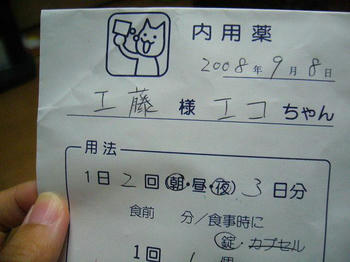 内用薬
2008年9月8日
工藤 様 エコちゃん
用法
1日2回(朝・昼・夜)3日分
食前 分/食事時に
錠・カプセル
1回 1個